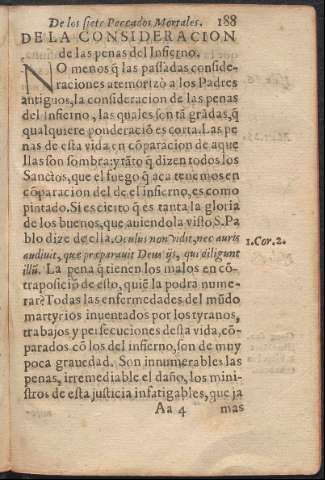 De los siete Peccados Mortales. 188
DE LA CONSIDERACION
de las penas del Infierno.
NO menos q̃ las passadas conside-
raciones atemorizò a los Padres
antiguos, la consideracion de las penas
del Infierno, las quales son tã grãdas, q̃
qualquiere ponderació es corta. Las pe
nas de esta vida en cõparacion de aque
llas son sombra: y tãto q̃ dizen todos los
Sanctos, que el fuego q̃ aca tenemos en
cõparacion del de el infierno, es como
pintado. Si es cierto q̃ es tanta la gloria
de los buenos, que auiendola visto S. Pa
blo dize de ella. Oculus non vidit, nec auris
1. Cor. 2.
audiuit, quæ præparauit Deus ijs, qui diligunt
illũ. La pena q̃ tienen los malos en cõ-
traposiciõ de esto, quiẽ la podra nume-
rar? Todas las enfermedades del mũdo
martyrios inuentados por los tyranos,
trabajos y persecuciones desta vida, cõ-
parados cõ los del infierno, son de muy
poca grauedad. Son innumerables las
penas, irremediable el daño, los mini-
stros de esta justicia infatigables, que ja
Aa 4 mas